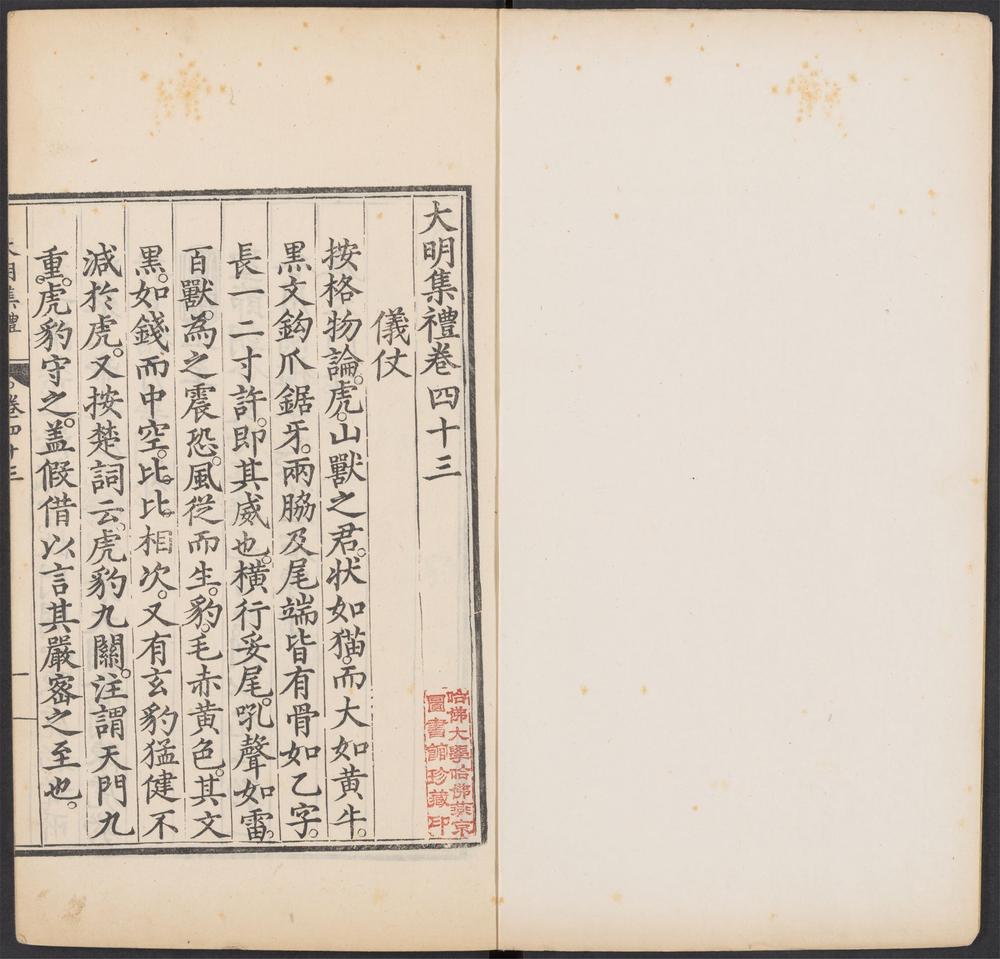 大明集禮卷四十三
儀仗
按格物論。虎。山獸之君。狀如猫。而大如黄牛。
黑文鈎爪鋸牙。兩脇及尾端皆有骨如乙字。
長一二寸許。即其威也。橫行妥尾。吼聲如雷。
百獸。為之震恐。風從而生。豹。毛赤黄色。其文
黑。如錢而中空。比比相次。又有玄豹猛健不
減於虎。又按楚詞云。虎豹九關。注謂天門九
重。虎豹守之。盖假借以言其嚴密之至也。
大明集禮 卷四十三
哈佛大學哈佛燕京
圖書館珍藏印